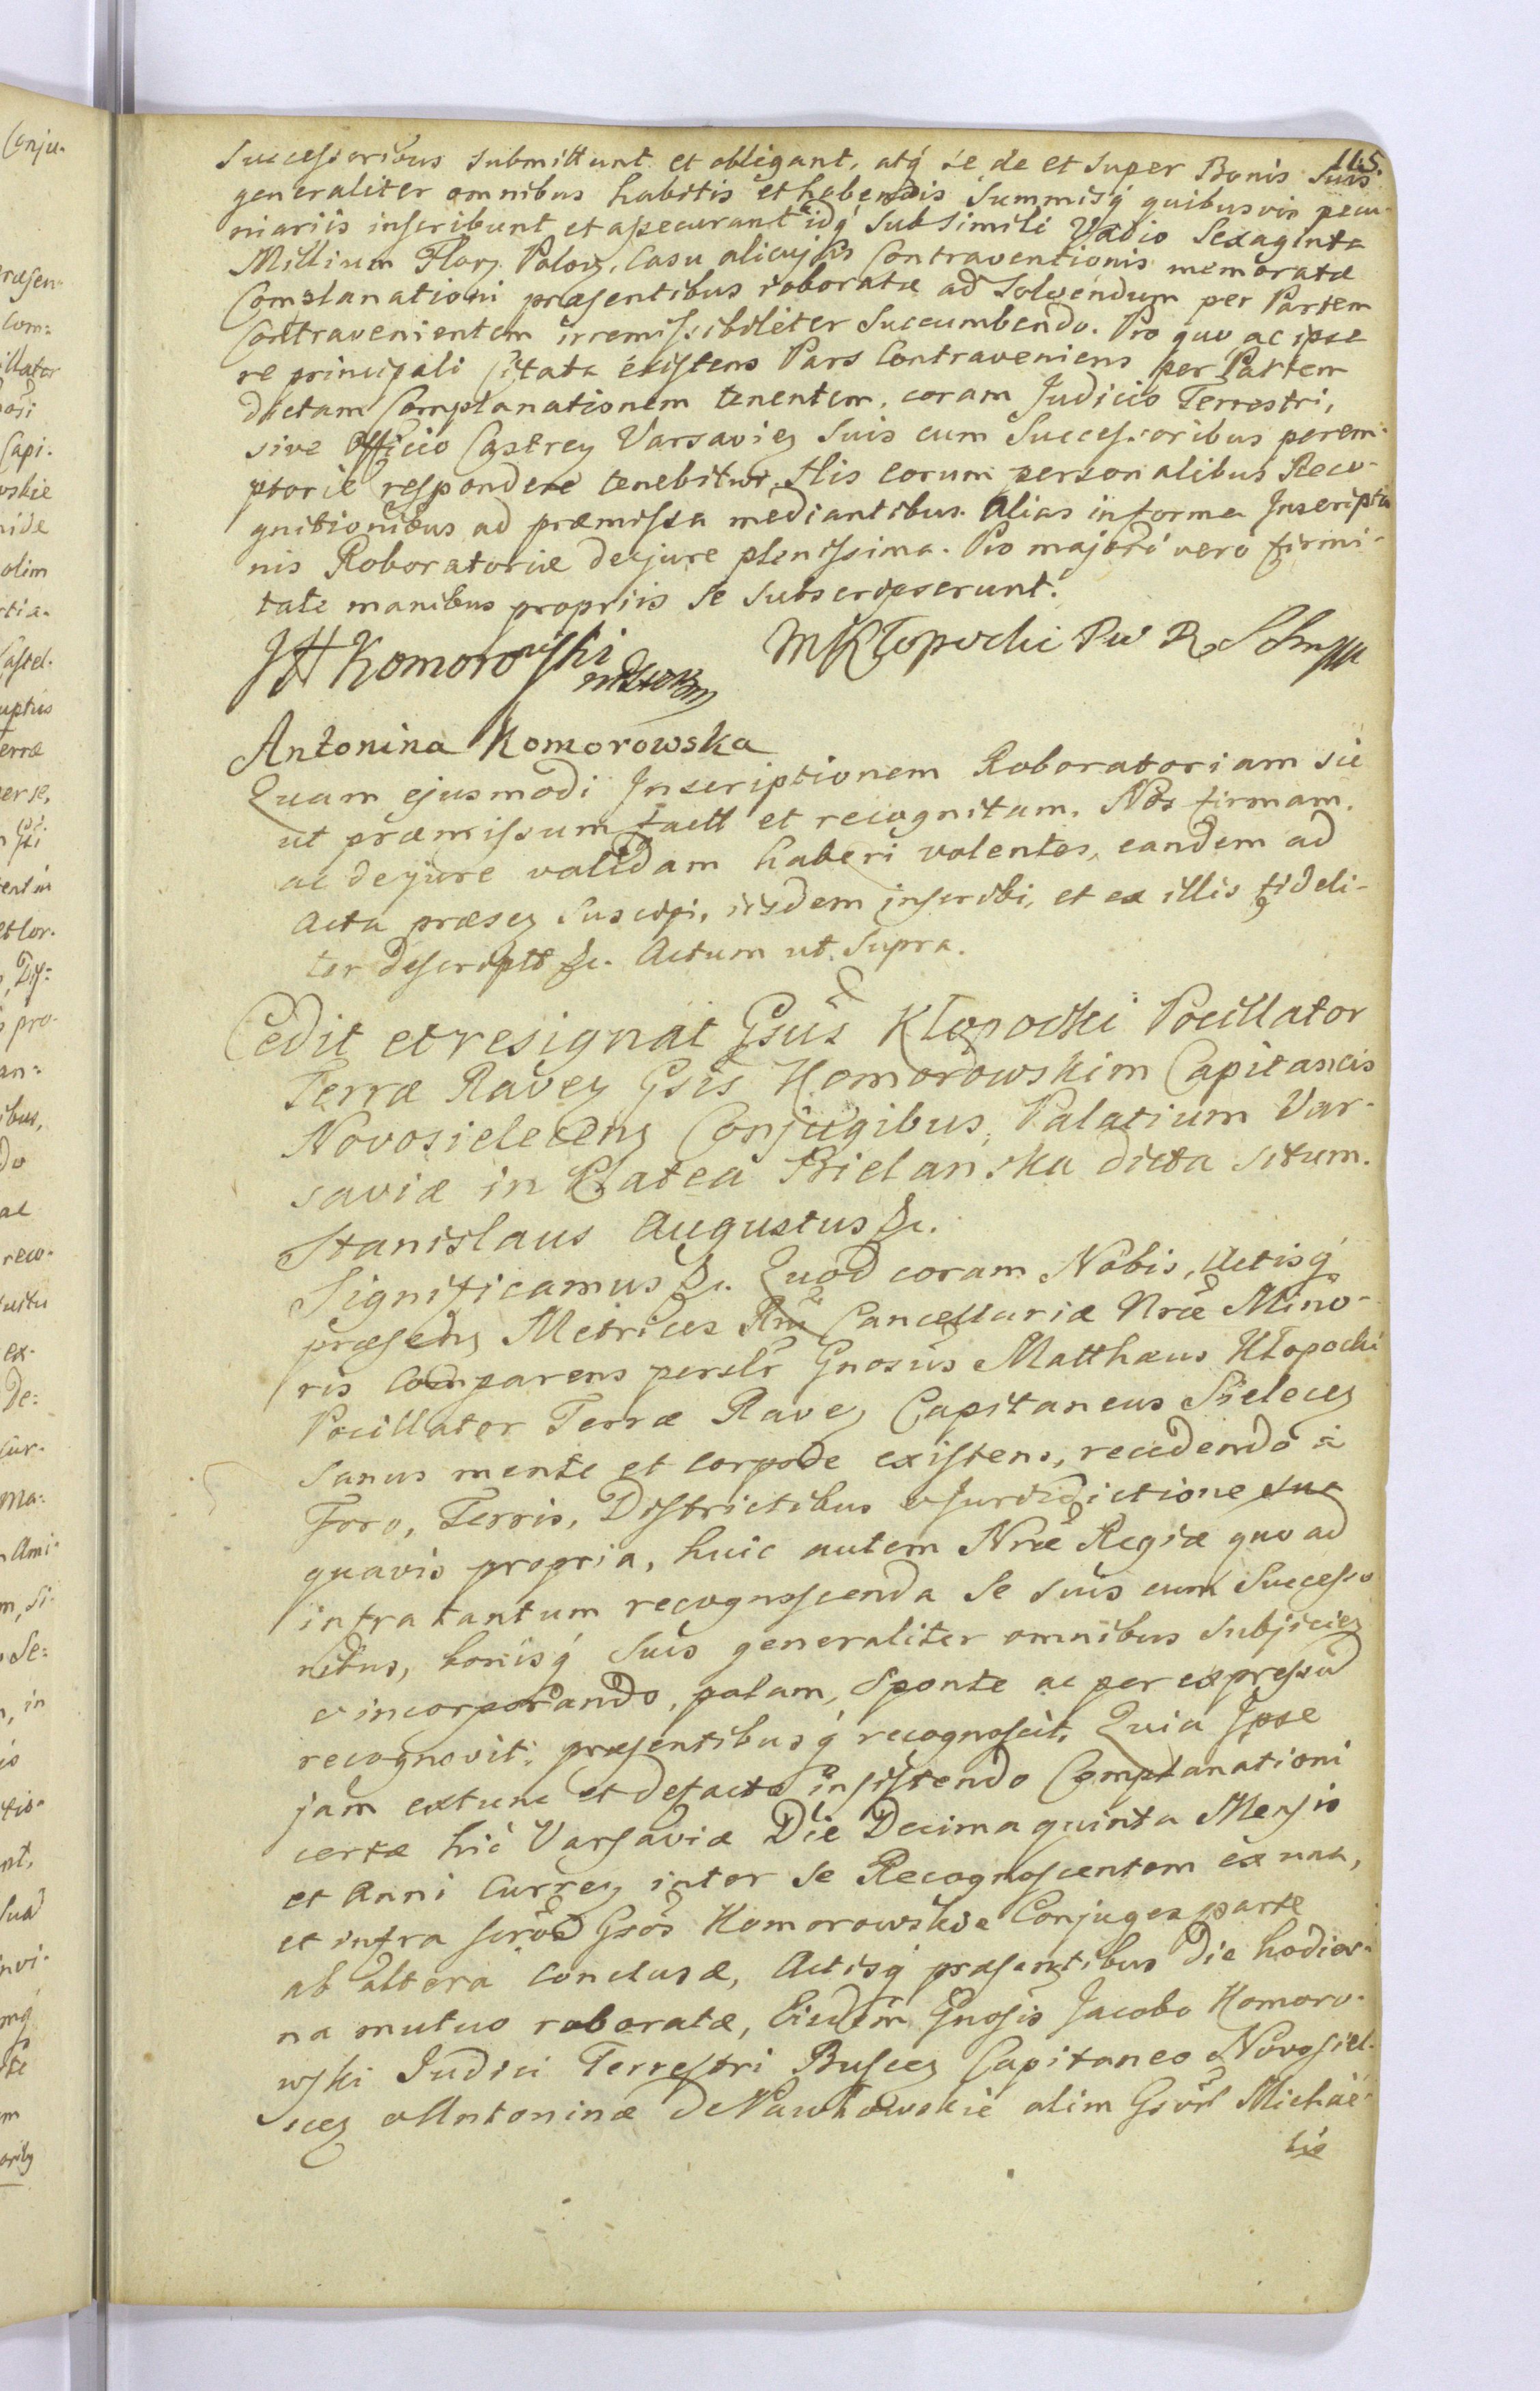 115.
Successoribus submittunt et obligant, atq́ se de et super Bonis suis
generaliter omnibus habitis et habendis Summisq́ quibusvis pecu-
niariis inscribunt et assecurant idq́ sub simili Vadio Sexaginta
Millium Florȝ Polorȝ, Casu alicujus Contraventionis memoratæ
Complanationi præsentibus roboratæ ad solvendum per Partem
Contravenientem irremissibiliter succumbendo. Pro quo ac ipsa
re principali Citata existens Pars Contraveniens per Partem
dictam Complanationem tenentem, coram Judicio Terrestri,
sive Officio Castreȝ Varsavieȝ suis cum Successoribus perem-
ptorie respondere tenebitur. His eorum personalibus Reco-
gnitionibus ad præmissa mediantibus. Alias in forma Inscriptio
nis Roboratoriæ de jure plenissima. Pro majori vero firmi-
tate manibus propriis se subscripserunt.
JH Komorowski
MKłopocki PW R
Antonina Komorowska
Quam ejusmodi Inscriptionem Roboratoriam sic
ut præmissum factt et recognitam, Nos firmam
ac de jure validam haberi volentes, eandem ad
Acta præseȝ suscipi, iisdem inscribi, et ex illis fideli-
ter descriptt &c. Actum ut supra.
Cedit et resignat Gsus Kłopocki Pocillator
Terræ Raveȝ Gsis Komorowskim Capitaneis
Novosieleceng Conjugibus, Palatium Var-
saviæ in Platea Bielanska dicta situm.
Stanislaus Augustus &c.
Significamus &c. Quod coram Nobis, Actisq́
præsenȝ Metrices Rni Cancellariæ Nræ Mino-
ris comparens perslr Gnosus Matthæus Kłopocki
Pocillator Terræ Raveȝ Capitaneus Sieleceȝ
sanus mente et corpore existens, recedendo a
Foro, Terris, Districtibus & Jurisdictione sua
quavis propria, huic autem Nræ Regiæ quo ad
infra tantum recognoscenda se suis cum Successo
ribus, bonisq́ suis generaliter omnibus subjicieȝ
& incorporando, palam, sponte ac per expressum
recognovit, præsentibusq́ recognoscit. Quia Ipse
jam extunc et defacto insistendo Complanationi
certæ hic Varsaviæ Die Decima quinta Mensis
et Anni Curreȝ inter se Recognoscentem ex una,
et infra scrōs Gsos Komorowskie Conjuges parte
ab altera conclusæ, Actisq́ præsentibus die hodier-
na mutuo roboratæ, Eisdem Gnosis Jacobo Komoro-
wski Judici Terrestri Busceȝ Capitaneo Novosiel-
ceȝ & Antoninæ de Pawłowskie olim Gsör Michaē-
lis